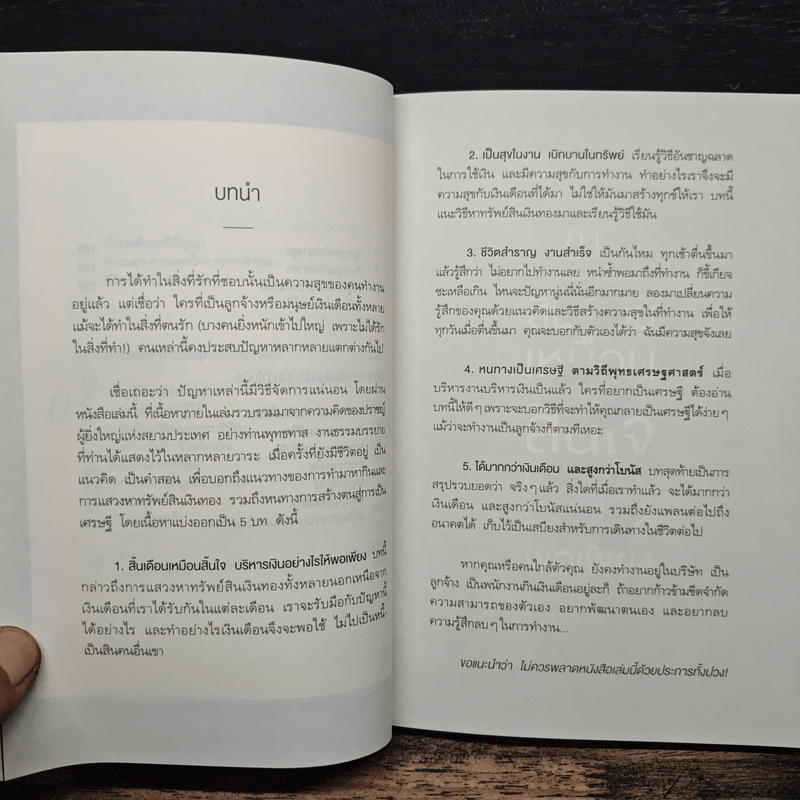 บทนำ
การได้ทำในสิ่งที่รักที่ชอบนั้นเป็นความสุขของคนทำงาน
อยู่แล้ว แต่เชื่อว่า ใครที่เป็นลูกจ้างหรือมนุษย์เงินเดือนทั้งหลาย
แม้จะได้ทำในสิ่งที่ตนรัก (บางคนยิ่งหนักเข้าไปใหญ่ เพราะไม่ได้รัก
ในสิ่งที่ทำ!) คนเหล่านี้คงประสบปัญหาหลากหลายแตกต่างกันไป
เชื่อเถอะว่า ปัญหาเหล่านี้มีวิธีจัดการแน่นอน โดยผ่าน
หนังสือเล่มนี้ ที่เนื้อหาภายในเล่มรวบรวมมาจากความคิดของปราชญ์
ผู้ยิ่งใหญ่แห่งสยามประเทศ อย่างท่านพุทธทาส งานธรรมบรรยาย
ที่ท่านได้แสดงไว้ในหลากหลายวาระ เมื่อครั้งที่ยังมีชีวิตอยู่ เป็น
แนวคิด เป็นคำสอน เพื่อบอกถึงแนวทางของการทำมาหากินและ
การแสวงหาทรัพย์สินเงินทอง รวมถึงหนทางการสร้างตนสู่การเป็น
เศรษฐี โดยเนื้อหาแบ่งออกเป็น 5 บท ดังนี้
1. สิ้นเดือนเหมือนสิ้นใจ บริหารเงินอย่างไรให้พอเพียง บทนี้
กล่าวถึงการแสวงหาทรัพย์สินเงินทองทั้งหลายนอกเหนือจาก
เงินเดือนที่เราได้รับกันในแต่ละเดือน เราจะรับมือกับปัญหานี้
ได้อย่างไร และทำอย่างไรเงินเดือนจึงจะพอใช้ ไม่ไปเป็นหนี้-
เป็นสินคนอื่นเขา
2. เป็นสุขในงาน เบิกบานในทรัพย์ เรียนรู้วิธีอันชาญฉลาด
ในการใช้เงิน และมีความสุขกับการทำงาน ทำอย่างไรเราจึงจะมี
ความสุขกับเงินเดือนที่ได้มา ไม่ใช่ให้มันมาสร้างทุกข์ให้เรา บทนี้
แนะวิธีหาทรัพย์สินเงินทองมาและเรียนรู้วิธีใช้มัน
3. ชีวิตสำราญ งานสำเร็จ เป็นกันไหม ทุกเช้าตื่นขึ้นมา
แล้วรู้สึกว่า ไม่อยากไปทำงานเลย หนำซ้ำพอมาถึงที่ทำงาน ก็ขี้เกียจ
ซะเหลือเกิน ไหนจะปัญหานู่นนี่นั่นอีกมากมาย ลองมาเปลี่ยนความ
รู้สึกของคุณด้วยแนวคิดและวิธีสร้างความสุขในที่ทำงาน เพื่อให้
ทุกวันเมื่อตื่นขึ้นมา คุณจะบอกกับตัวเองได้ว่า ฉันมีความสุขจังเลย
4. หนทางเป็นเศรษฐี ตามวิถีพุทธเศรษฐศาสตร์ เมื่อ
บริหารงานบริหารเงินเป็นแล้ว ใครที่อยากเป็นเศรษฐี ต้องอ่าน
บทนี้ให้ดีๆ เพราะจะบอกวิธีที่จะทำให้คุณกลายเป็นเศรษฐีได้ง่ายๆ
แม้ว่าจะทำงานเป็นลูกจ้างก็ตามทีเหอะ
5. ได้มากกว่าเงินเดือน และสูงกว่าโบนัส บทสุดท้ายเป็นการ
สรุปรวบยอดว่า จริงๆ แล้ว สิ่งใดที่เมื่อเราทำแล้ว จะได้มากกว่า
เงินเดือน และสูงกว่าโบนัสแน่นอน รวมถึงยังแผลนต่อไปถึง
อนาคตได้ เก็บไว้เป็นเสบียงสำหรับการเดินทางในชีวิตต่อไป
หากคุณหรือคนใกล้ตัวคุณ ยังคงทำงานอยู่ในบริษัท เป็น
ลูกจ้าง เป็นพนักงานกินเงินเดือนอยู่ละก็ ถ้าอยากก้าวข้ามขีดจำกัด
ความสามารถของตัวเอง อยากพัฒนาตนเอง และอยากลบ
ความรู้สึกลบๆ ในการทำงาน...
ขอแนะนำว่า ไม่ควรพลาดหนังสือเล่มนี้ด้วยประการทั้งปวง!